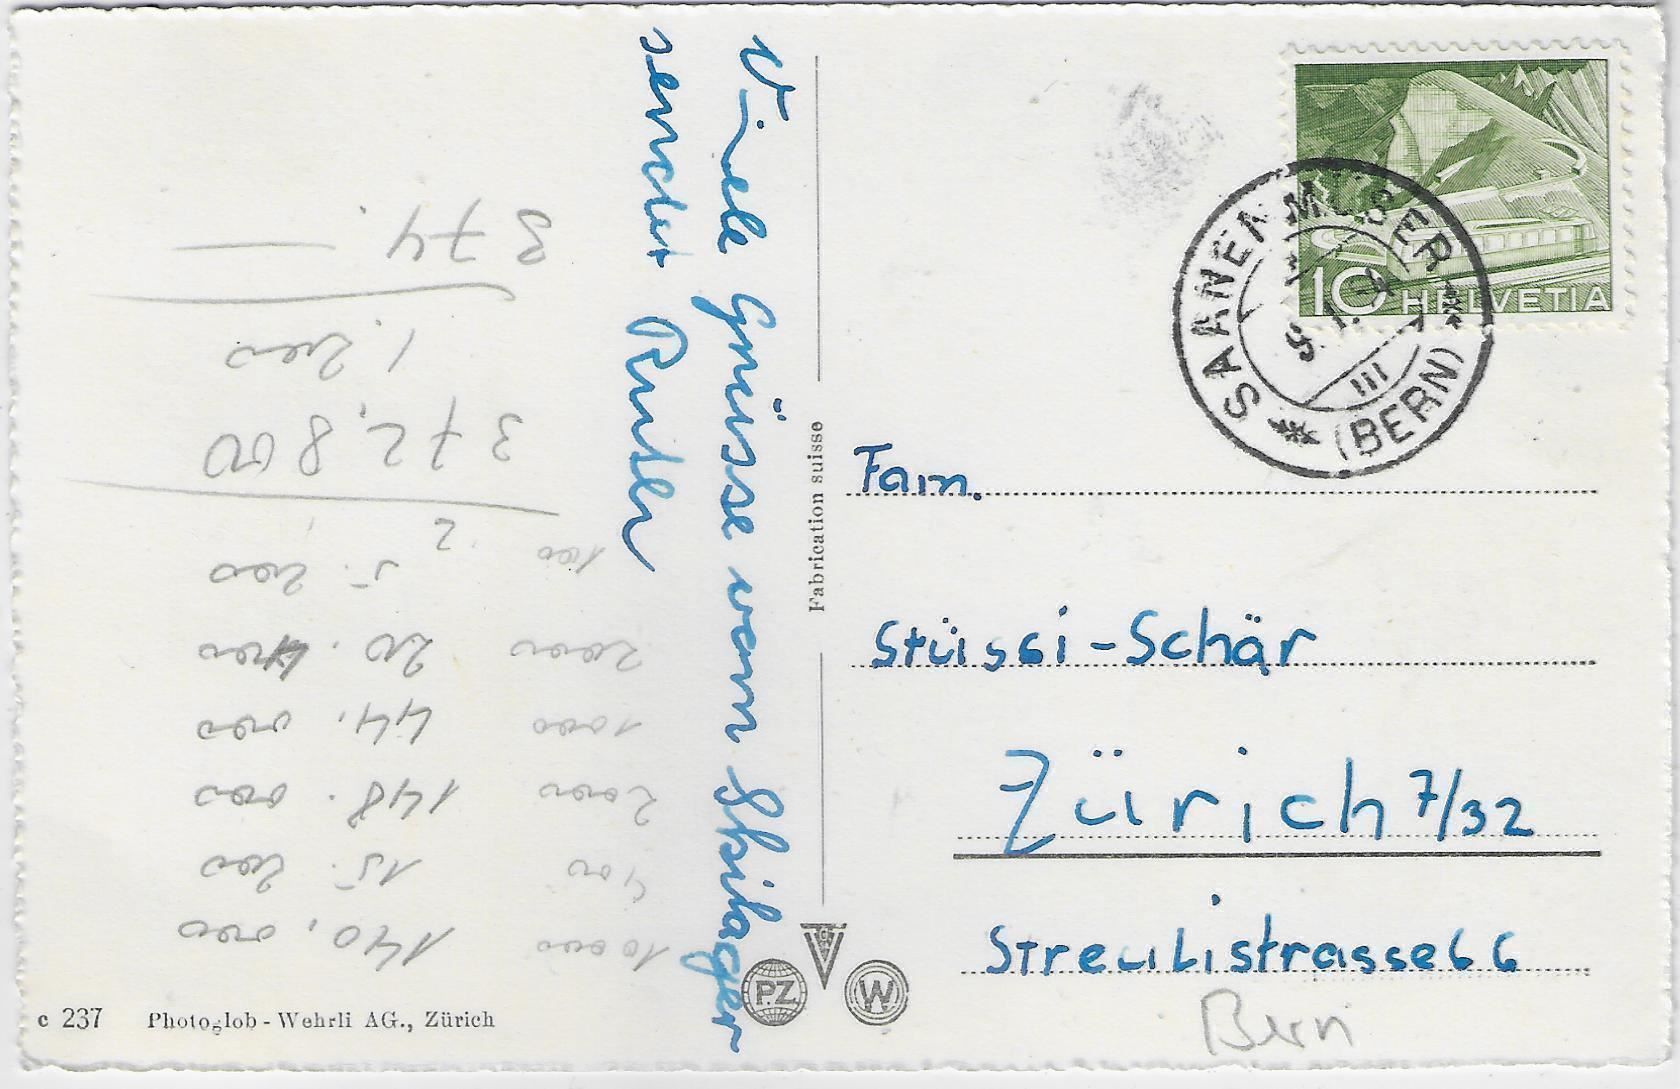 Viele Grüsse vom Skilager
sendet Ruth
Fabrication suisse
10 HELVETIA
SAANENMÖSER
(BERN)
III
Fam.
Stüssi-Schär
Zürich 7/32
Streulistrasse 66
Bern
PZ
W
c 237 Photoglob-Wehrli AG., Zürich
10000 140,000
400 15.200
2000 148.000
1000 44.000
2000 20.400
100 5.200
372,800
1.200
374.—